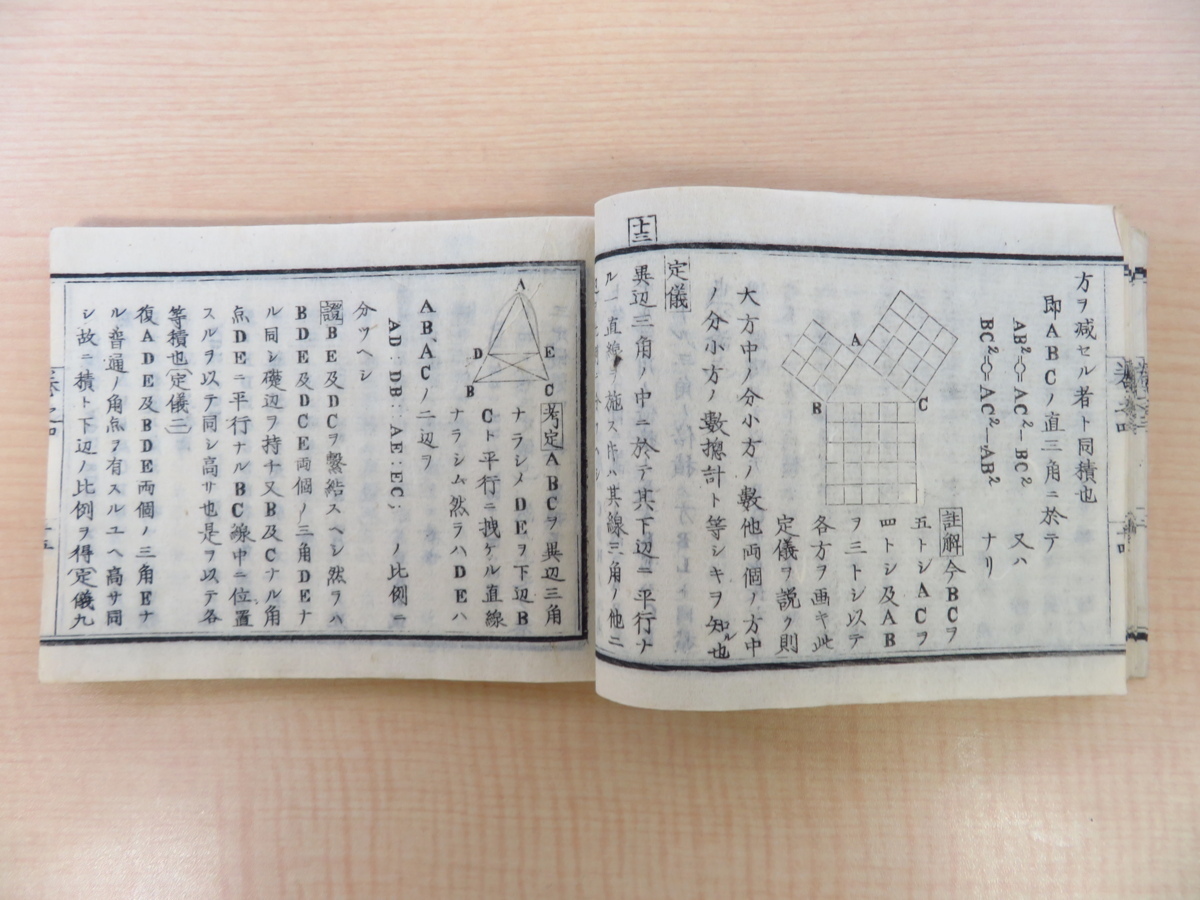 方ヲ减セル者ト同積也
即ABCノ直三角ニ於テ
AB²=AC²-BC² 又ハ
BC²=AC²-AB² ナリ
A
B
C
註解 今BCヲ
五トシACヲ
四トシ及AB
ヲ三トシ以テ
各方ヲ画キ此
定儀ヲ説ク則
大方中ノ分小方ノ數他両個ノ方中
ノ分小方ノ數揔計ト等シキヲ知ル也
定儀
十三
異辺三角ノ中ニ於テ其下辺ニ平行ナ
ル一直線ヲ施ス其線三角ノ他ニ
A
D
E
B
C
考定 ABCヲ異辺三角
ナラシメDEヲ下辺B
Cト平行ニ拽ケル直線
ナラシム然ラハDEハ
AB、ACノ二辺ヲ
AD:DB::AE:EC、ノ比例ニ
分ツヘシ
證 BE及DCヲ繫結スヘシ然ラハ
BDE及DCE両個ノ三角DEナ
ル同シ礎辺ヲ持チ又B及Cナル角
点DEニ平行ナルBC線中ニ位置
スルヲ以テ同シ高サ也是ヲ以テ各
等積也(定儀二)
復ADE及BDE両個ノ三角Eナ
ル普通ノ角点ヲ有スルユヘ高サ同
シ故ニ積ト下辺ノ比例ヲ得(定儀九